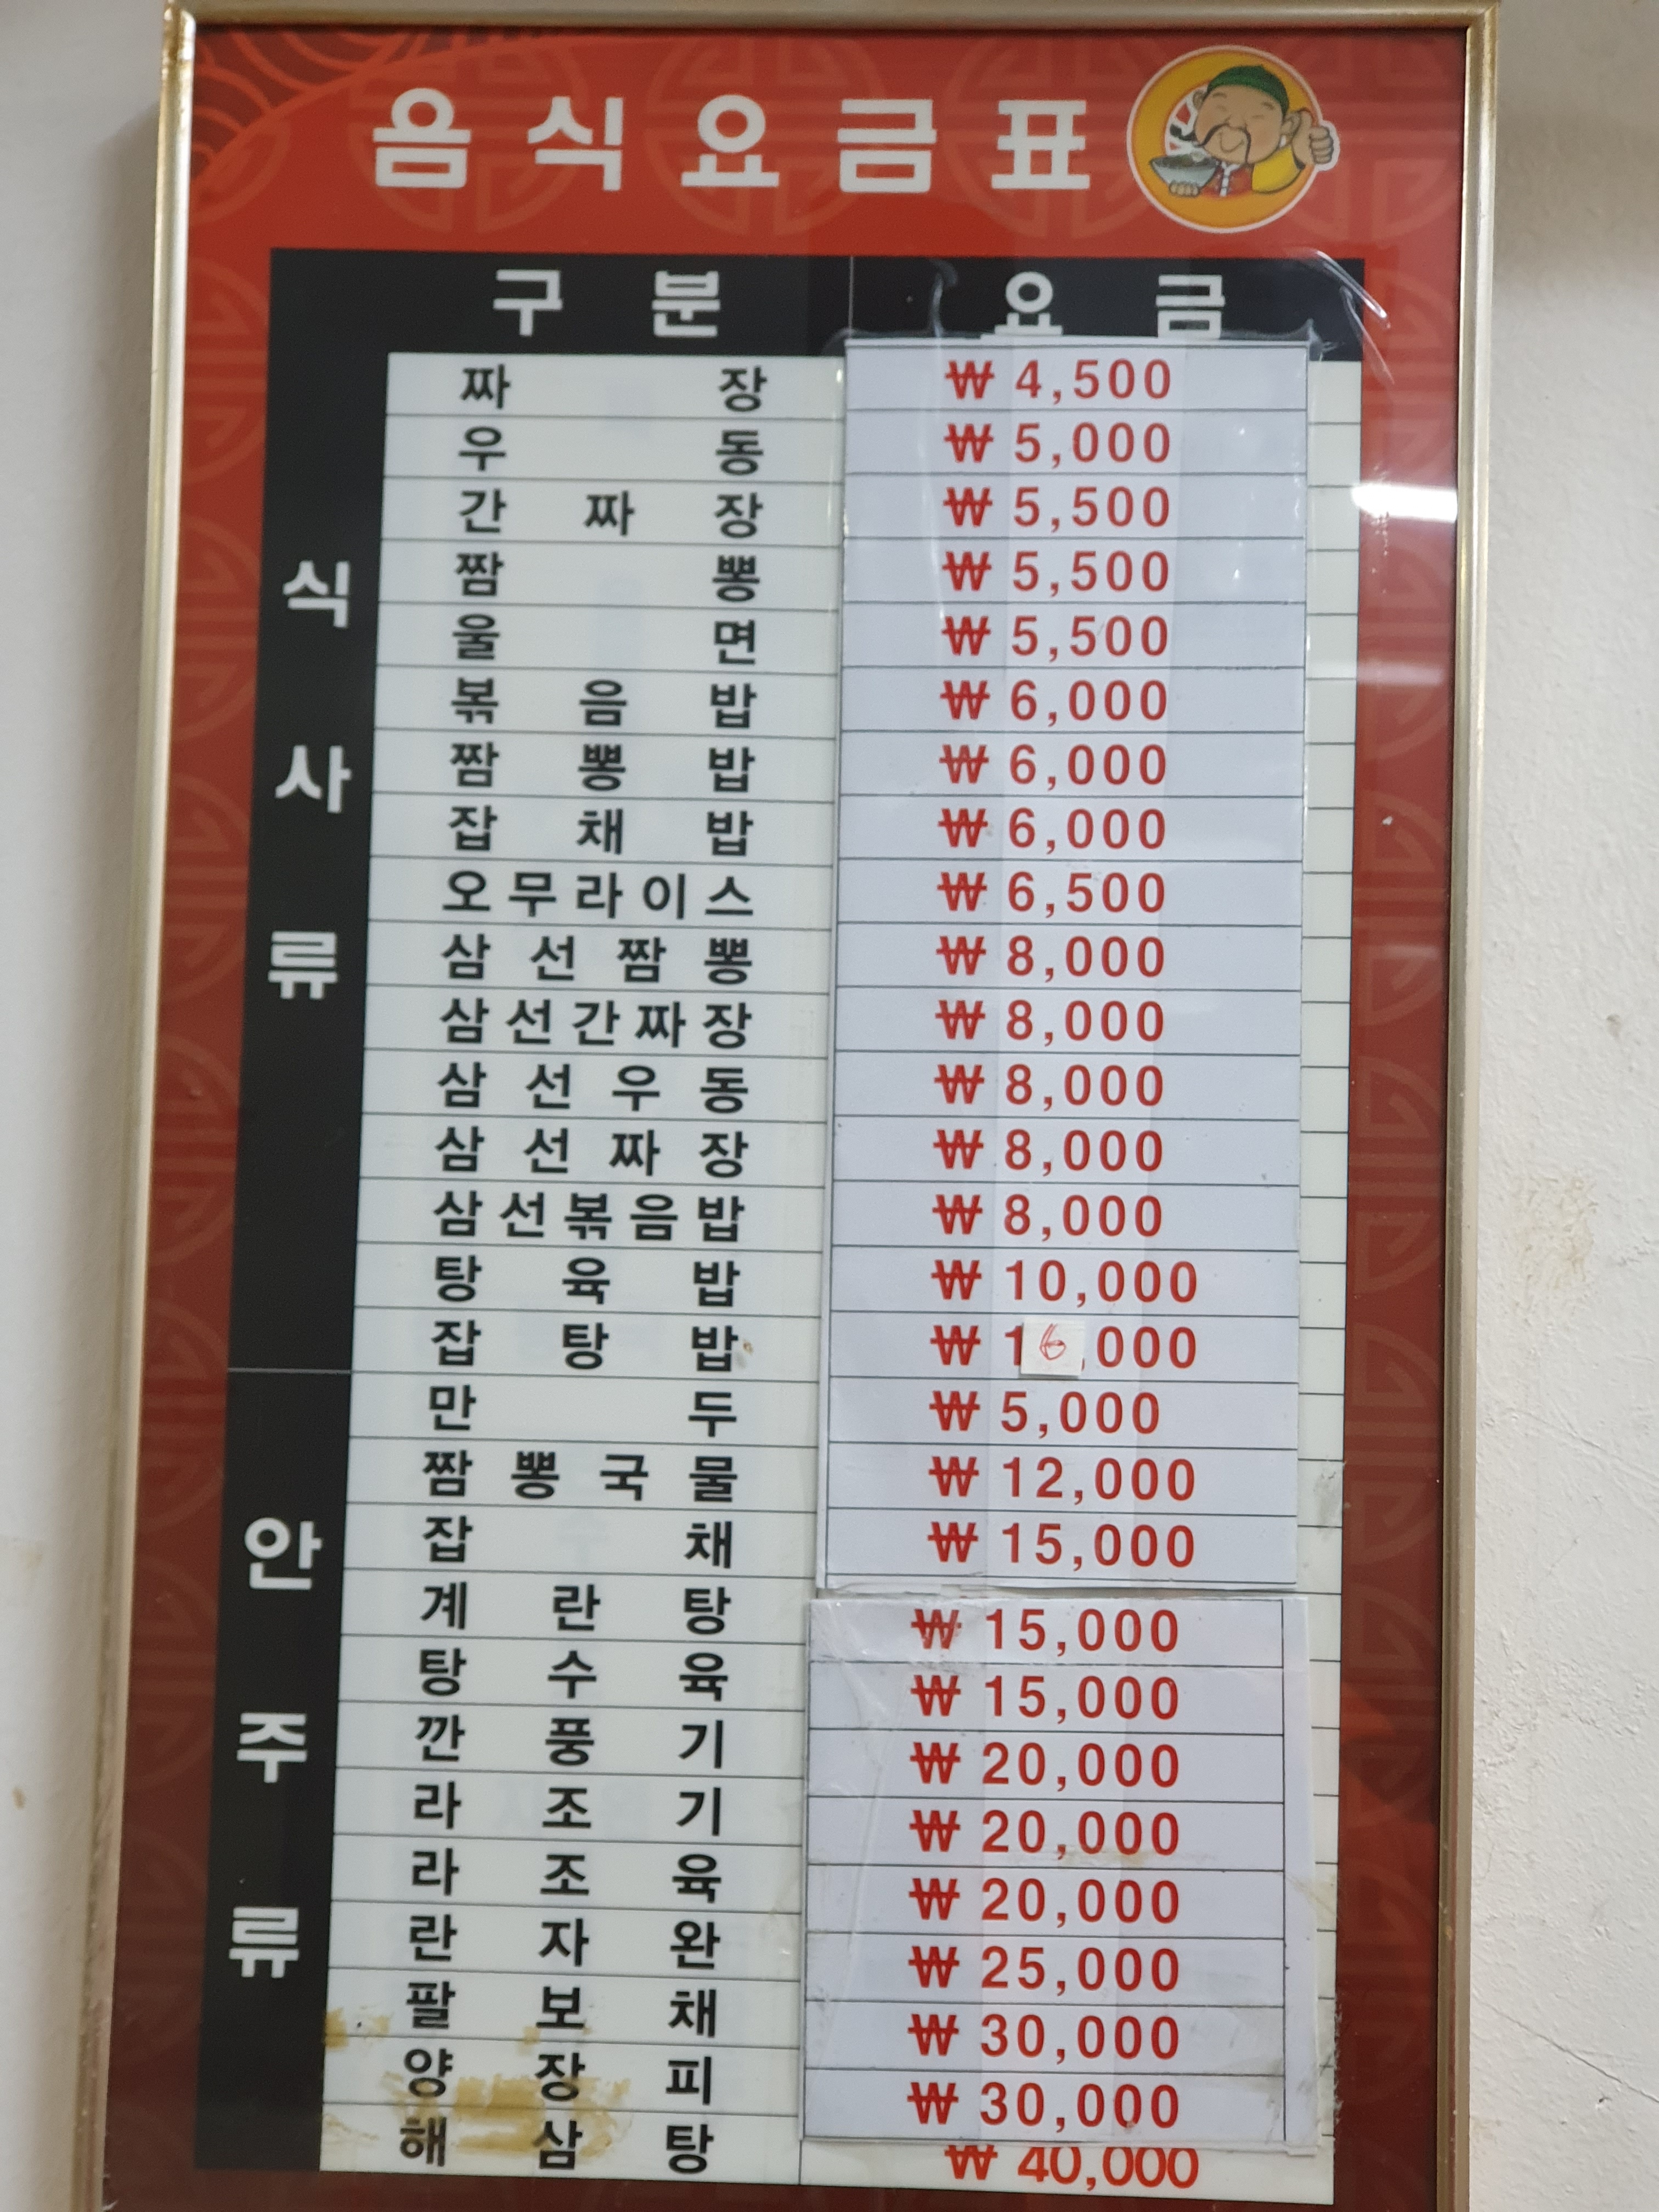 음식요금표
구분 요금
식사류
짜장 ₩4,500
우동 ₩5,000
간짜장 ₩5,500
짬뽕 ₩5,500
울면 ₩5,500
볶음밥 ₩6,000
짬뽕밥 ₩6,000
잡채밥 ₩6,000
오무라이스 ₩6,500
삼선짬뽕 ₩8,000
삼선간짜장 ₩8,000
삼선우동 ₩8,000
삼선짜장 ₩8,000
삼선볶음밥 ₩8,000
탕육밥 ₩10,000
잡탕밥 ₩16,000
안주류
만두 ₩5,000
짬뽕국물 ₩12,000
잡채 ₩15,000
계란탕 ₩15,000
탕수육 ₩15,000
깐풍기 ₩20,000
라조기 ₩20,000
라조육 ₩20,000
란자완 ₩25,000
팔보채 ₩30,000
양장피 ₩30,000
해삼탕 ₩40,000